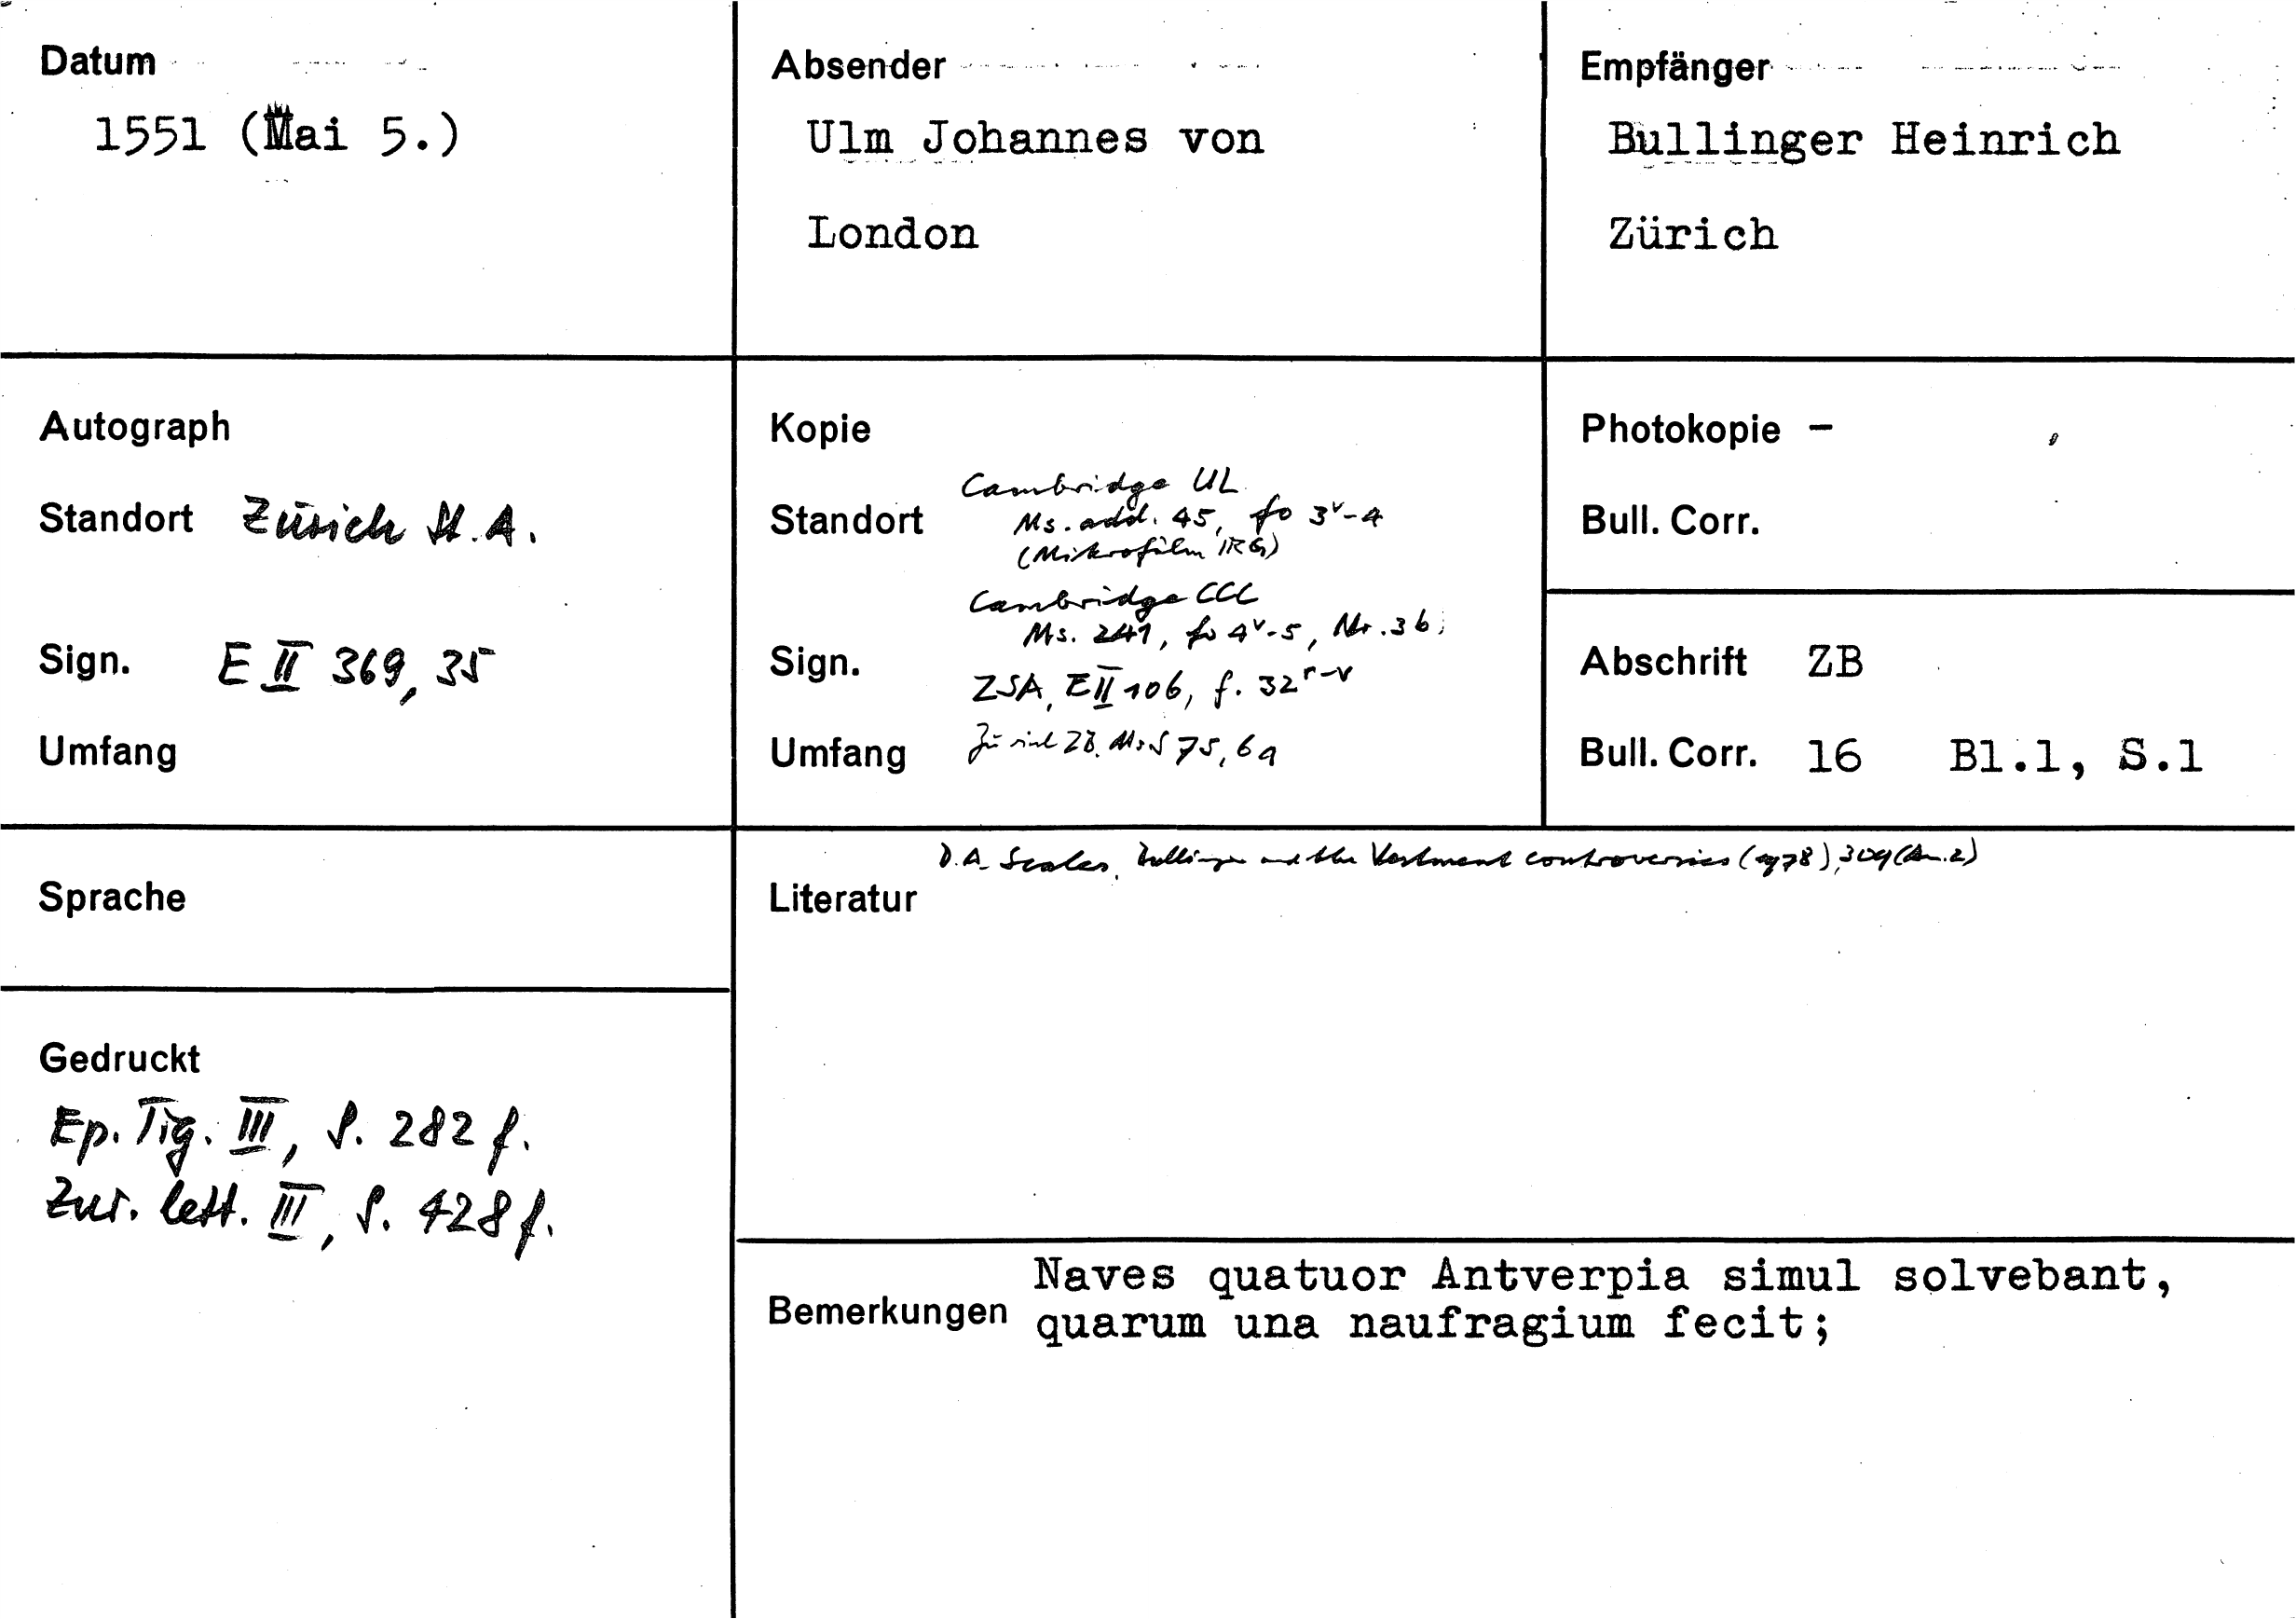 Datum
1551 (Mai 5.)
Absender
Ulm Johannes von
London
Empfänger
Bullinger Heinrich
Zürich
Autograph
Standort Zürich St.A.
Sign. E II 369, 35
Umfang
Kopie
Standort
Cambridge UL
Ms. add. 45, fo 3v-4
(Mikrofilm IRG)
Cambridge CCC
Ms. 241, fo 4v-5, Nr. 3b;
Sign.
ZSA, E II 106, f. 32r-v
Umfang Zürich ZB. Ms S 75, 69
Photokopie -
Bull. Corr.
Abschrift ZB
Bull. Corr. 16 Bl.1, S.1
Sprache
D.A. Scales, Bullinger and the Vestment controversies (1978), 309 (An. 2)
Literatur
Gedruckt
Ep. Tig. III, S. 282 f.
Zur. lett. III, S. 428 f.
Bemerkungen
Naves quatuor Antverpia simul solvebant,
quarum una naufragium fecit;